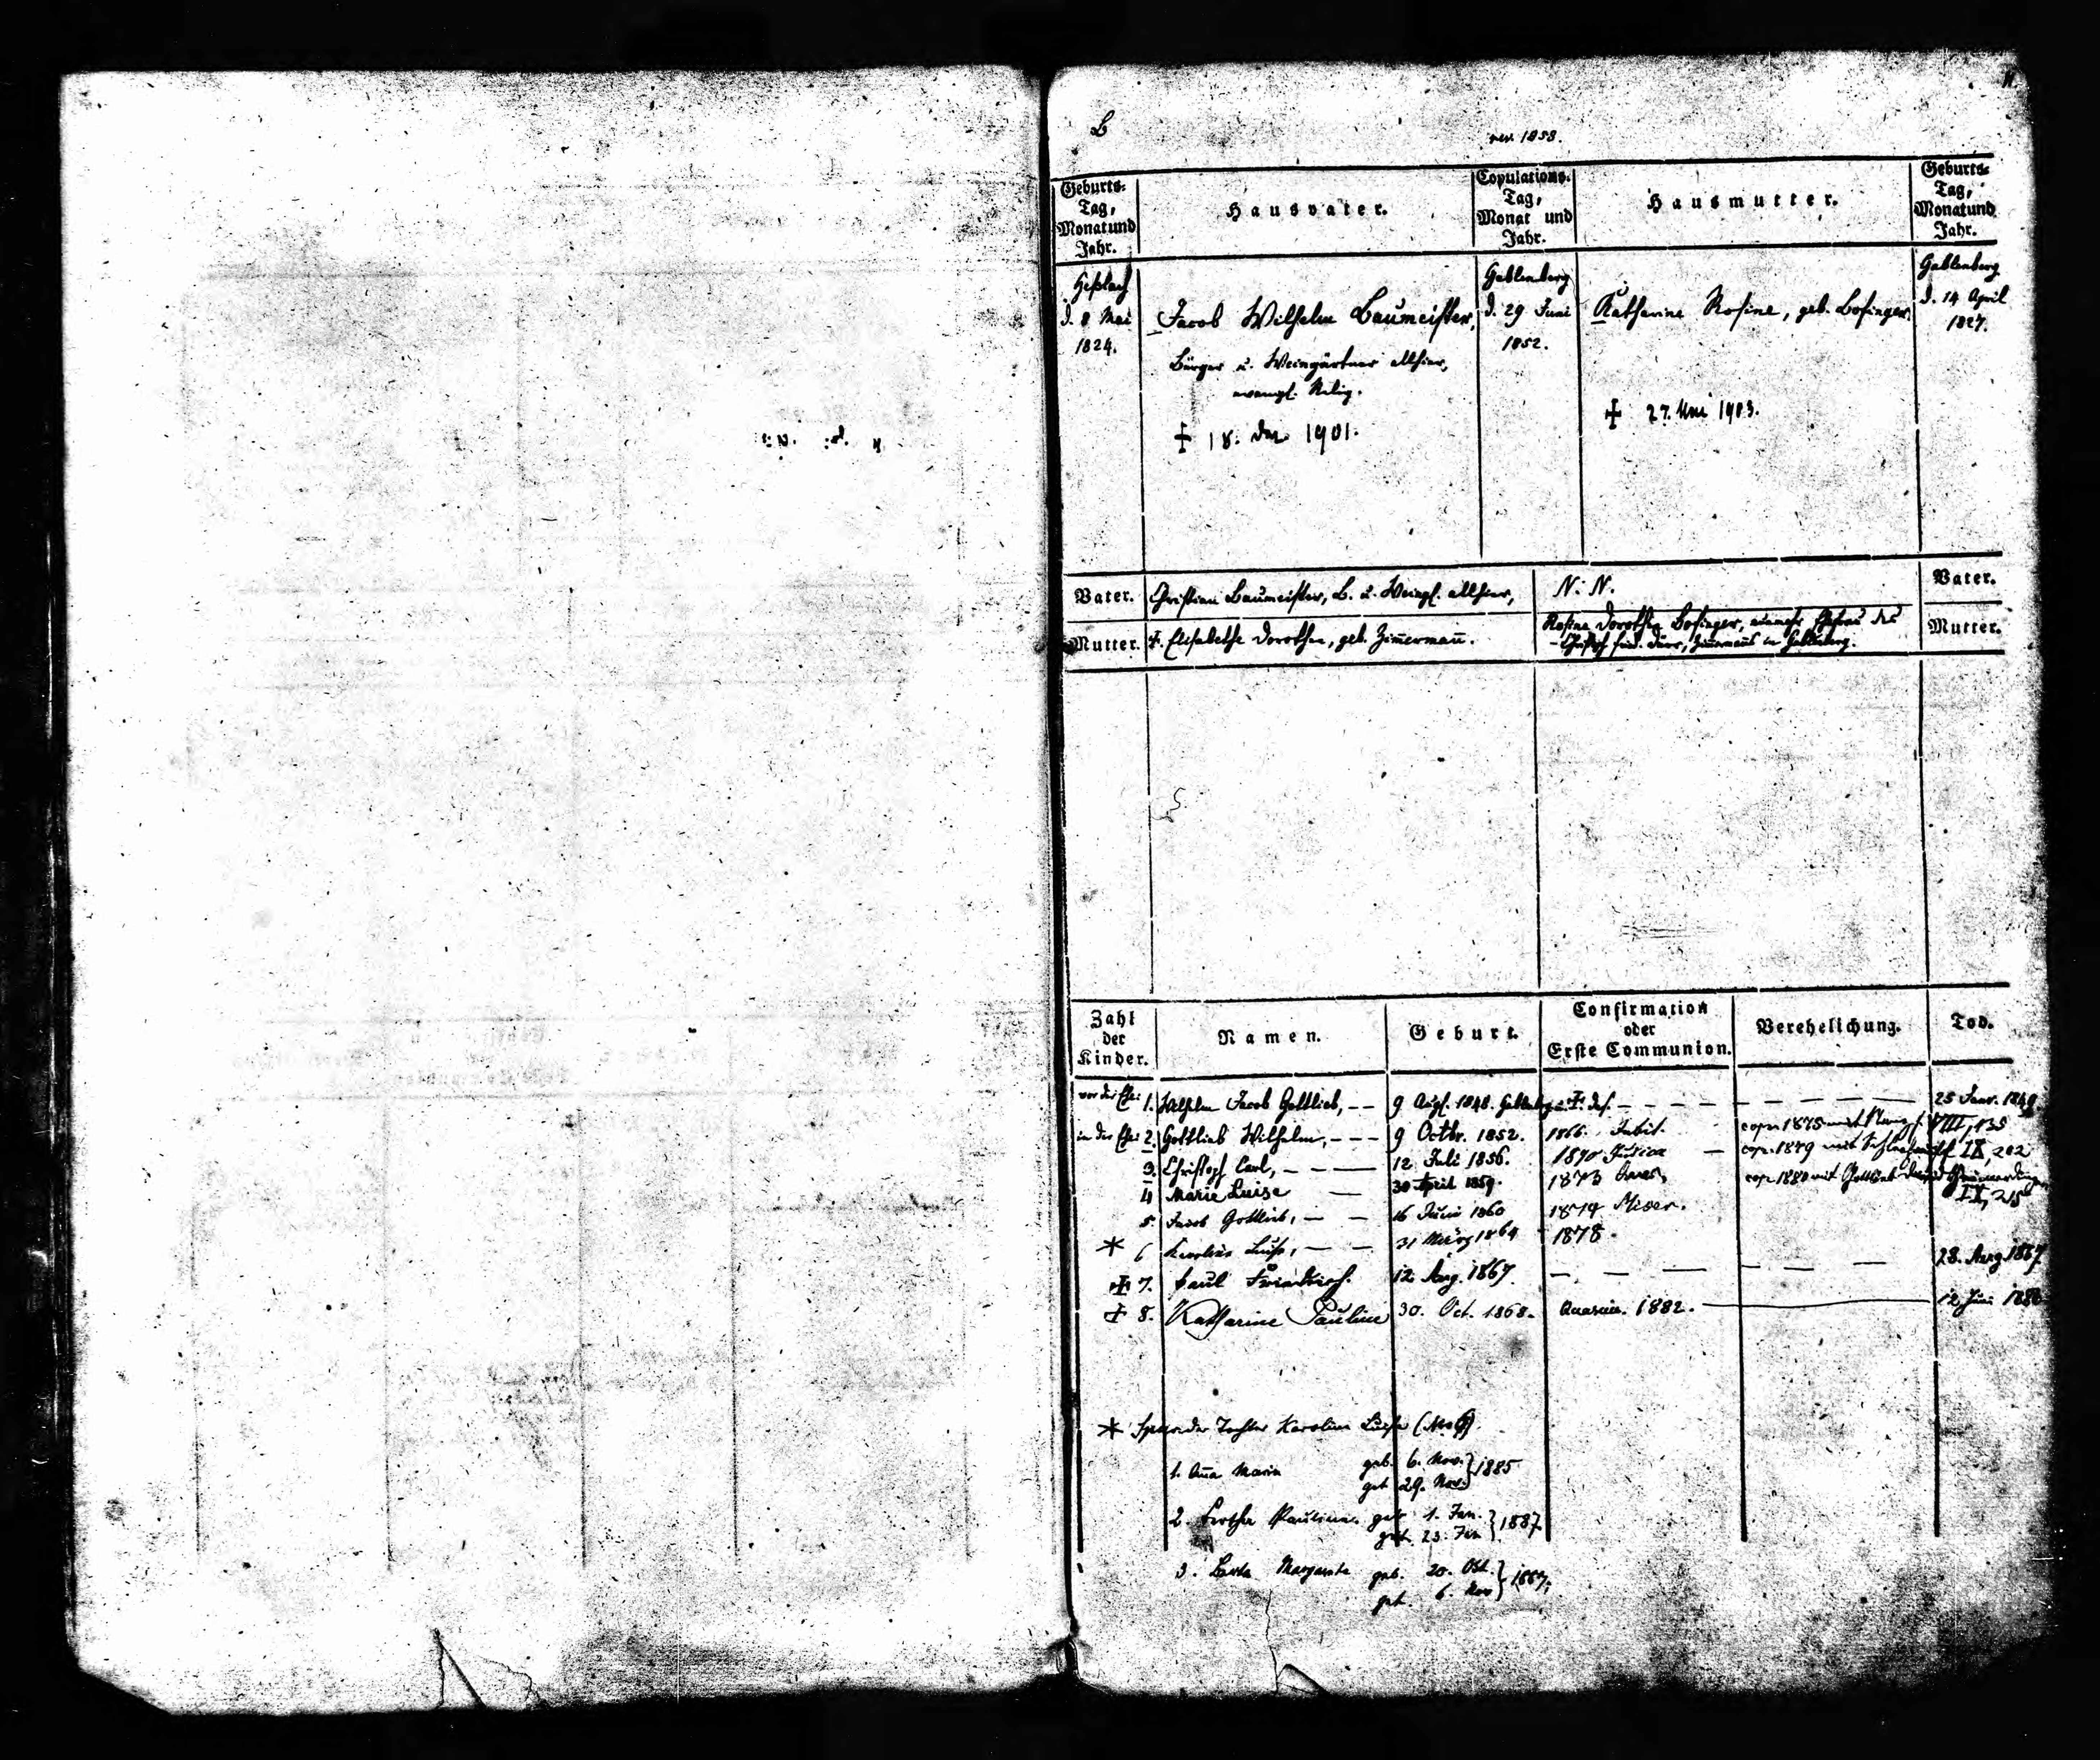 B
rev. 1858.
Geburts- Tag, Monat und Jahr.
Hausvater.
Copulations- Tag, Monat und Jahr.
Hausmutter.
Geburts- Tag, Monat und Jahr.
Heslach
d. 8 Mai
1824.
Jacob Wilhelm Baumeister,
Bürger u. Weingärtner allhier,
evangl. Relig.
18. Dez. 1901.
Gablenberg
d. 29 Juni
1852.
Katharina Rosine, geb. Bosinger.
27. Mai 1903.
Gablenberg
d. 14 April
1827.
Vater. Christian Baumeister, B. u. Weing. allhier, N. N. Vater.
Mutter. Elisabetha Dorothea, geb. Zimermañ. Rosina Dorothea Bosinger, Ehefrau des Mutter.
in Gablenberg.
Zahl der Kinder.
Namen.
Geburt.
Confirmation oder Erste Communion.
Verehelichung.
Tod.
vor der Ehe: 1. Wilhelm Jacob Gottlieb, 9 Aug. 1848. 25 Janr. 1849
in der Ehe: 2. Gottlieb Wilhelm, 9 Octbr. 1852. 1866. Jubil. cop. 1875 mit VIII, 135
3. Christoph Carl, 12 Juli 1856. 1870 Judica cop. 1879 mit IX, 202
4 Marie Luise 30 April 1859. 1873 cop. 1880 mit Gottlieb IX, 215
5. Jacob Gottlieb, 16 Juni 1860 1874 Miser.
* 6 Karoline Luise, 31 März 1864 1878.
7. Paul Friedrich. 12. Aug. 1867. 28. Aug. 1867.
8. Katharine Pauline 30. Oct. 1868. 1882. 12. Juni
* Spurie der Tochter Karoline Luise (No 6)
1. Aña Maria geb. 6. Nov. } 1885
get. 29. Nov.
2. Pauline geb. 1. Jan. } 1887
get. 23. Jan
3. Berta Margareta geb. 20. Okt. } 1887.
get. 6. Nov